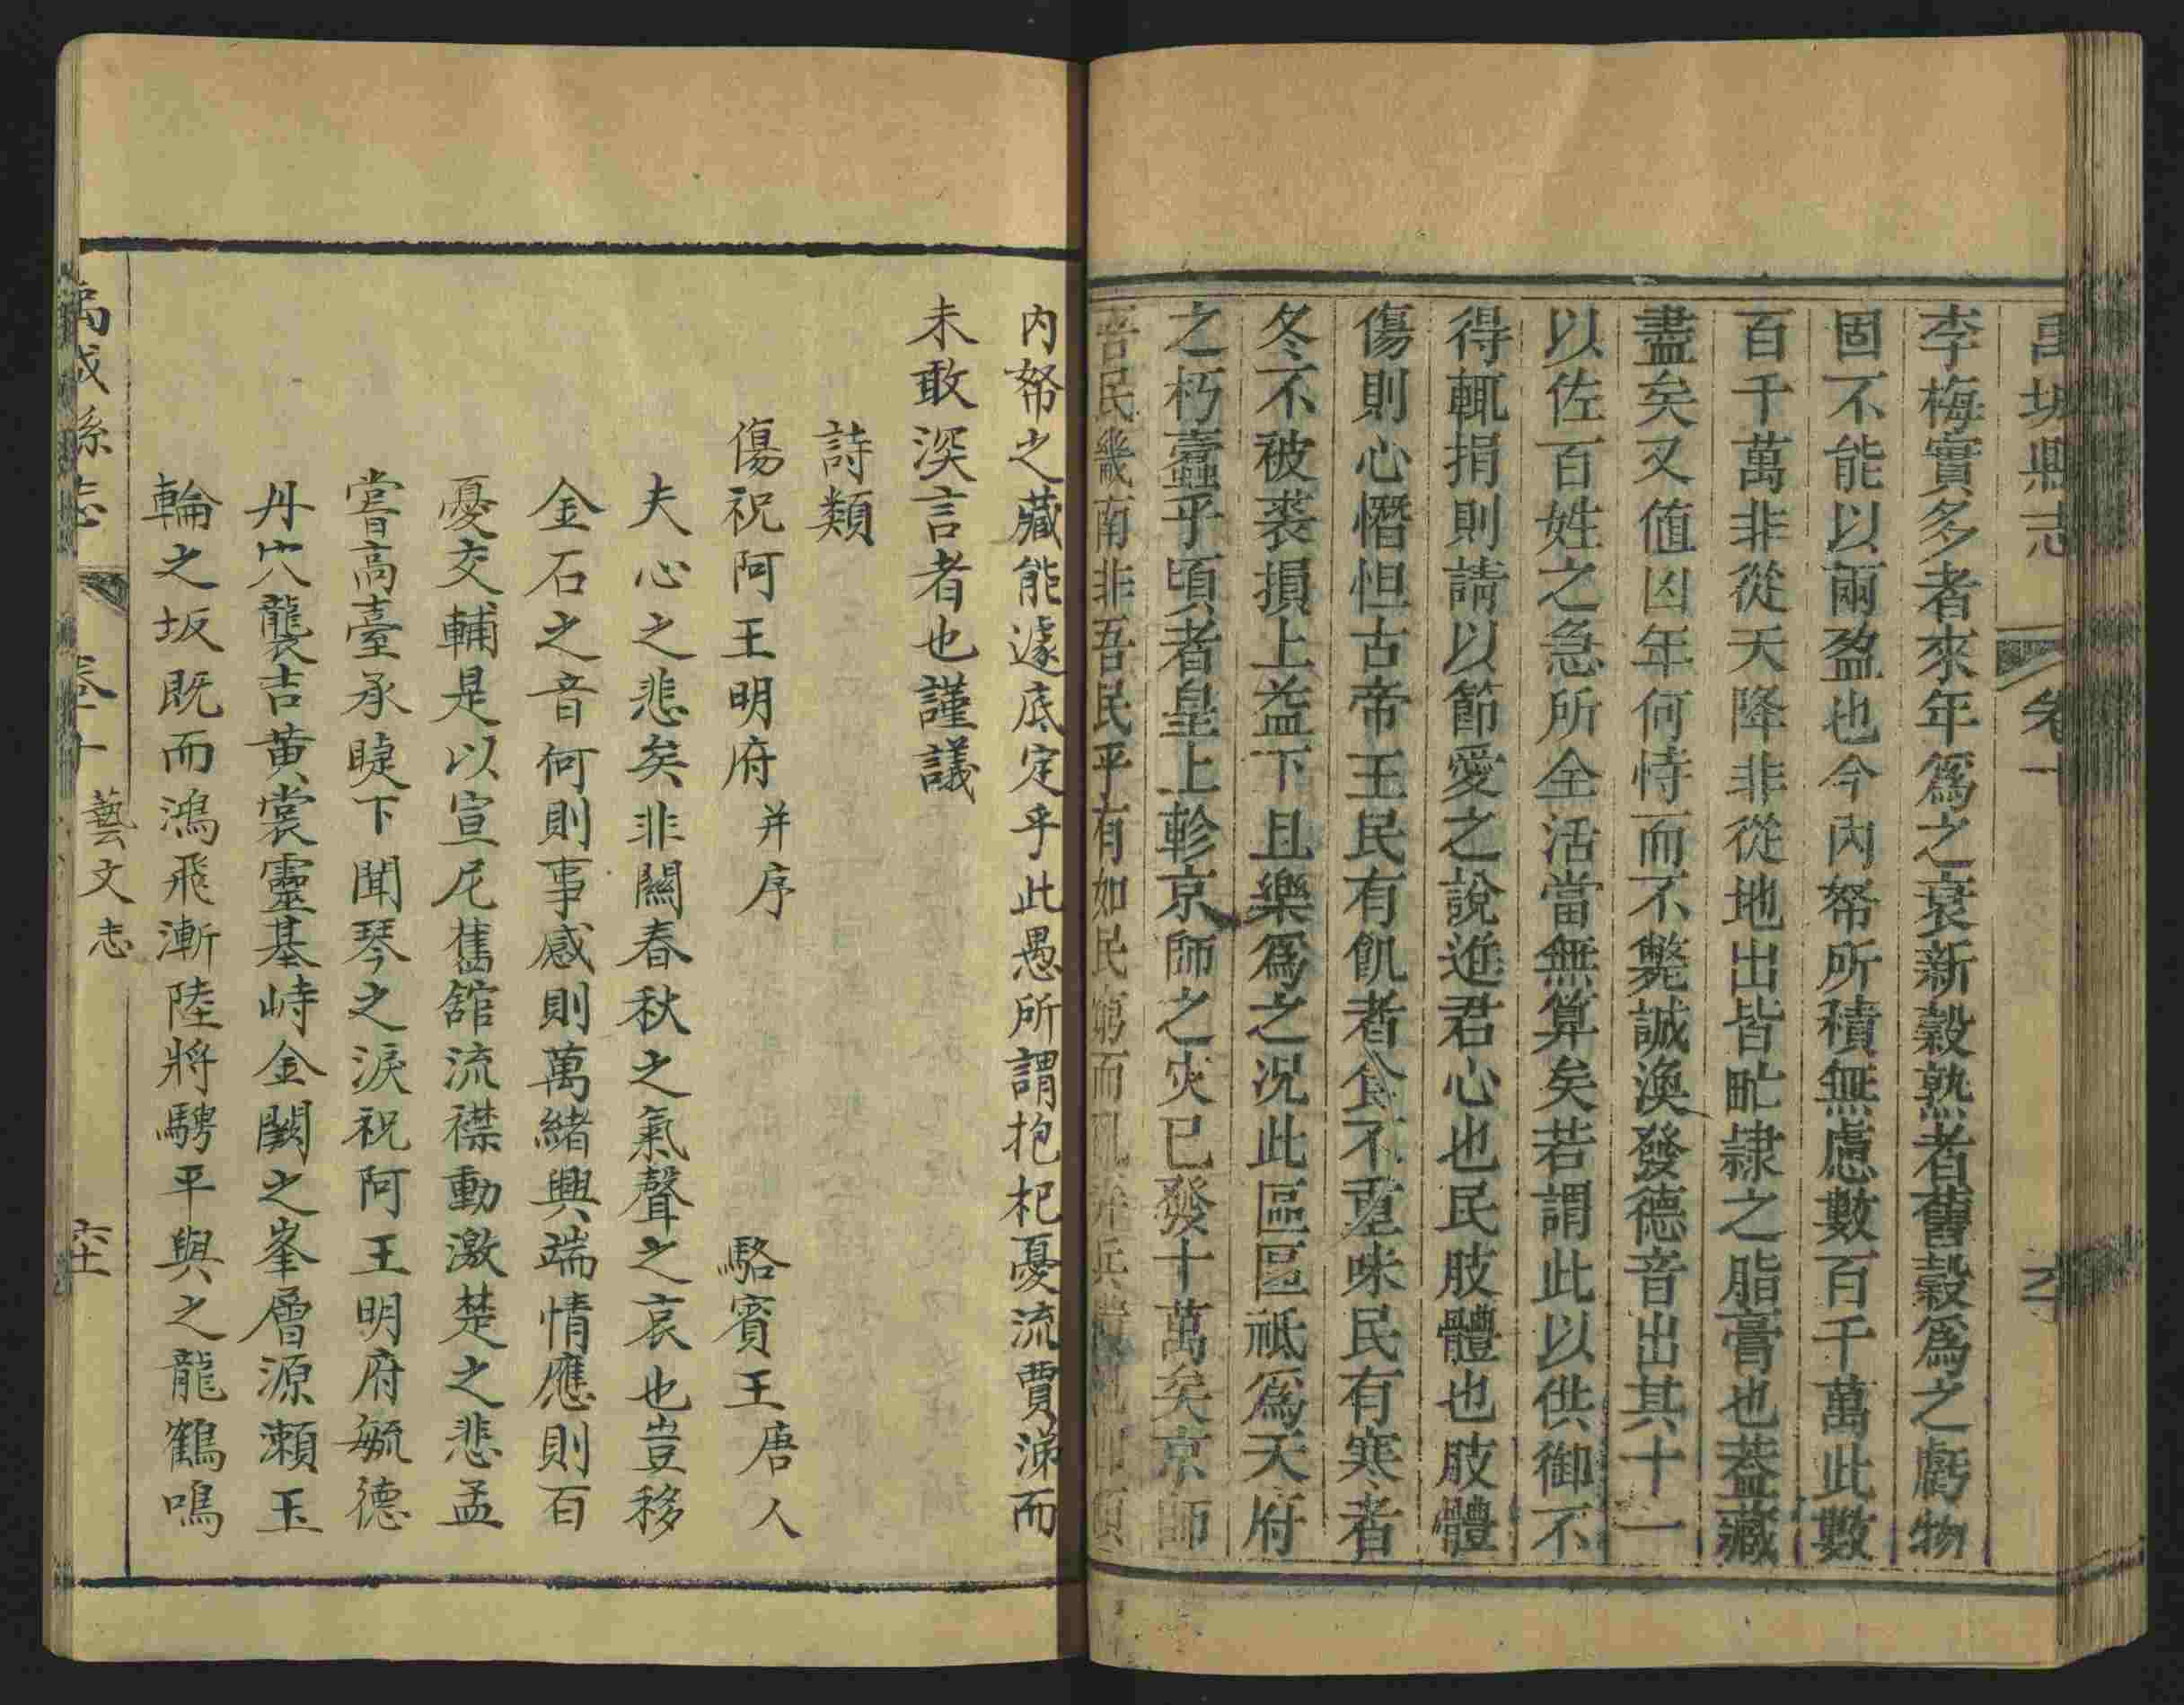 禹城縣志 卷一
李梅實多者來年爲之衰新穀熟者舊穀爲之虧物
固不能以兩盈也今內帑所積無慮數百千萬此數
百千萬非從天降非從地出皆甿隷之脂膏也葢藏
盡矣又值凶年何恃而不斃誠渙發德音出其十一
以佐百姓之急所全活當無算矣若謂此以供御不
得輒捐則請以節愛之說進君心也民肢體也肢體
傷則心憯怛古帝王民有飢者食不重味民有寒者
冬不被裘損上益下且樂爲之況此區區祗爲天府
之朽蠹乎頃者皇上軫京師之灾已發十萬矣京師
吾民畿南非吾民乎有如民窮而
內帑之藏能遽底定乎此愚所謂抱杞憂流賈涕而
未敢深言者也謹議
詩類
傷祝阿王明府 并序 駱賓王 唐人
夫心之悲矣非關春秋之氣聲之哀也豈移
金石之音何則事感則萬緒興端情應則百
憂交輔是以宣尼舊舘流襟動激楚之悲孟
嘗高臺承睫下聞琴之淚祝阿王明府毓德
丹穴襲吉黄裳靈基峙金闕之峯層源瀨玉
輪之坂既而鴻飛漸陸將騁平輿之龍鶴鳴
禹城縣志 卷十 藝文志 六十